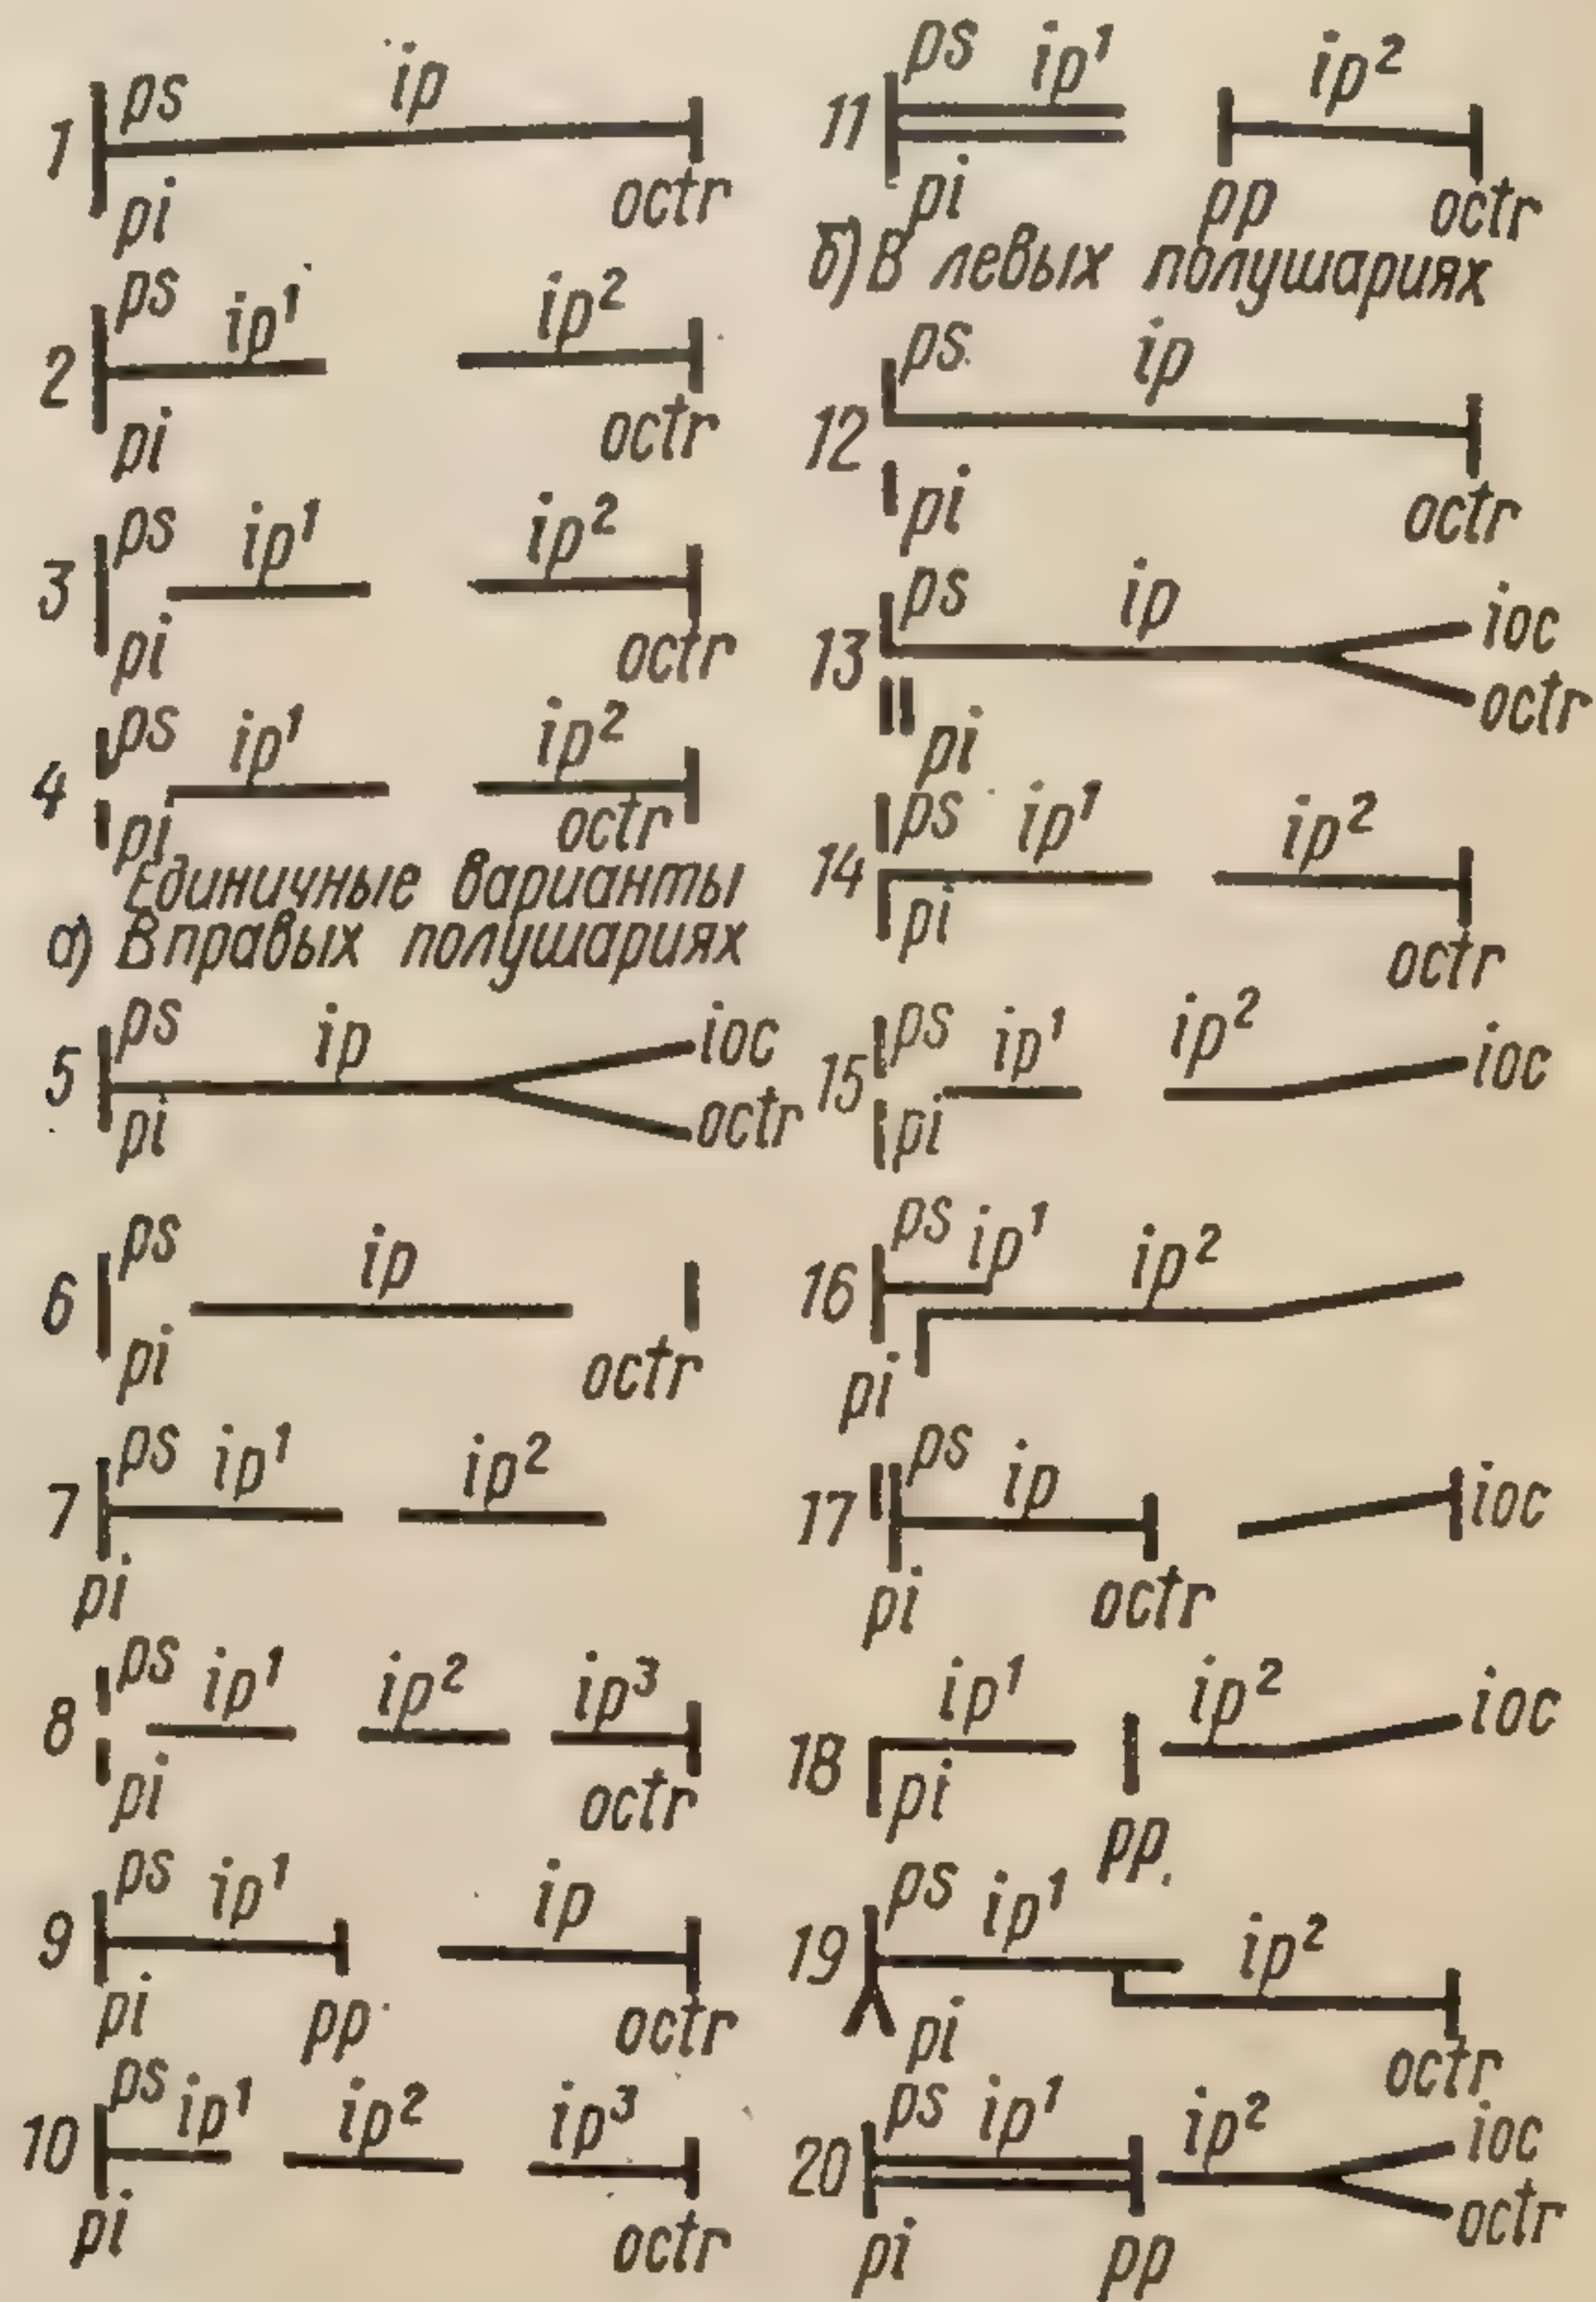 1 ps ip
pi octr
2 ps ip¹ ip²
pi octr
3 ps ip¹ ip²
pi octr
4 ps ip¹ ip²
pi octr
Единичные варианты
а) В правых полушариях
5 ps ip ioc
pi octr
6 ps ip
pi octr
7 ps ip¹ ip²
pi
8 ps ip¹ ip² ip³
pi octr
9 ps ip¹ ip
pi pp octr
10 ps ip¹ ip² ip³
pi octr
11 ps ip¹ ip²
pi pp octr
б) В левых полушариях
12 ps ip
pi octr
13 ps ip ioc
pi octr
14 ps ip¹ ip²
pi octr
15 ps ip¹ ip² ioc
pi
16 ps ip¹ ip²
pi
17 ps ip ioc
pi octr
18 ip¹ ip² ioc
pi pp
19 ps ip¹ ip²
pi octr
20 ps ip¹ ip² ioc
pi pp octr